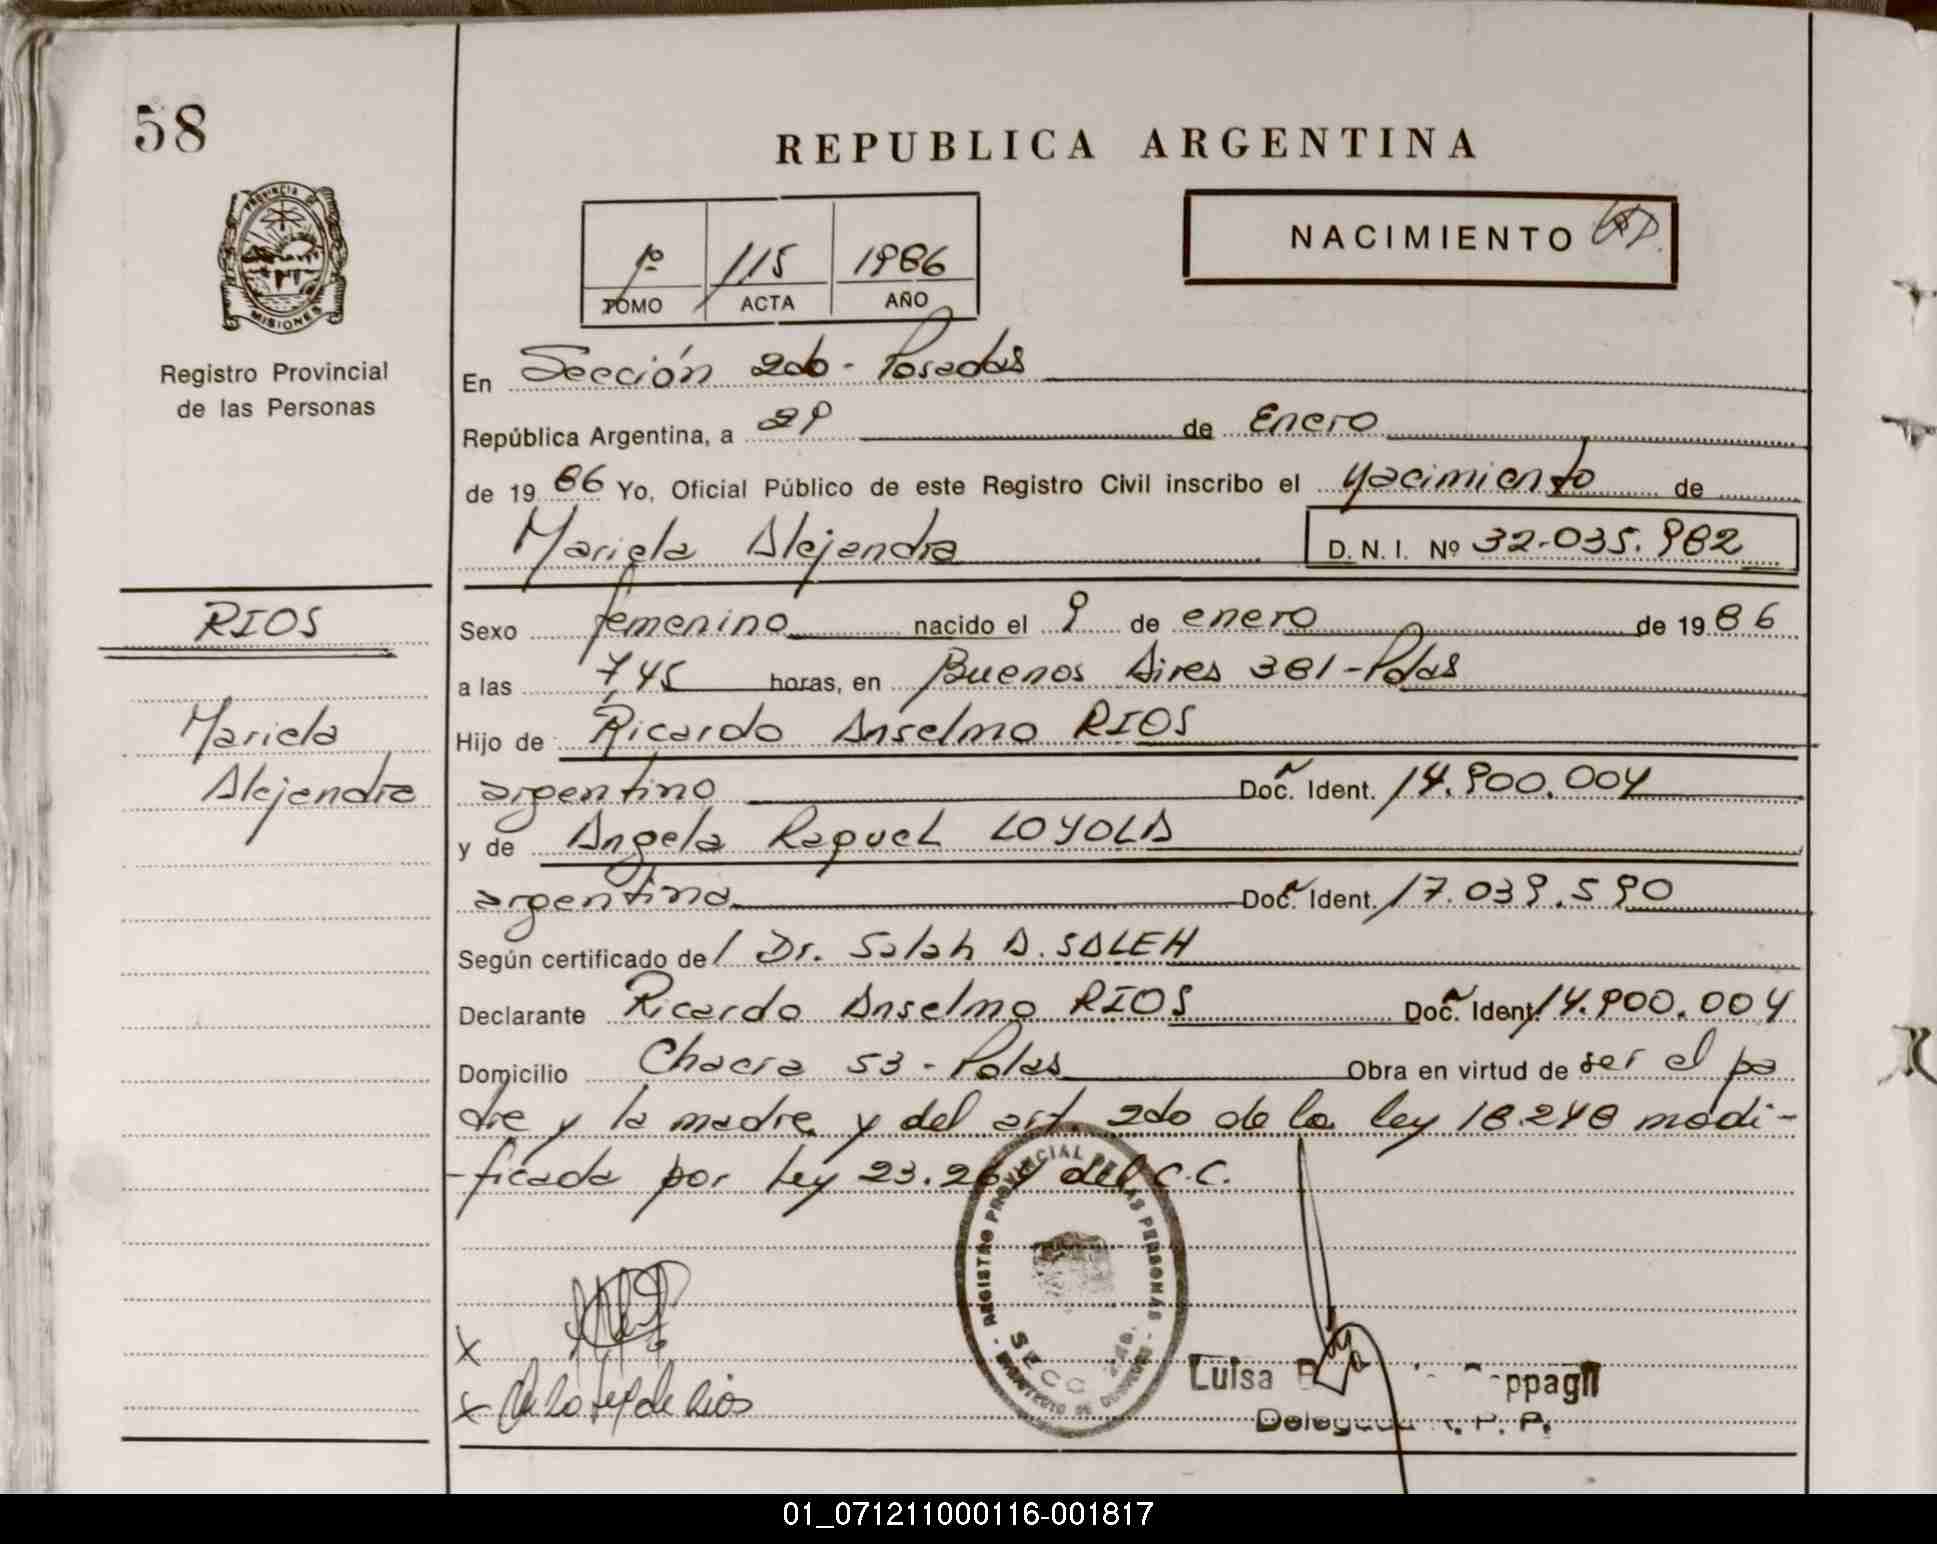 58
REPUBLICA ARGENTINA
PROVINCIA DE
MISIONES
Registro Provincial
de las Personas
1º 115 1986
TOMO ACTA AÑO
NACIMIENTO
En Sección 2da - Posadas
República Argentina, a 29 de Enero
de 19 86 Yo, Oficial Público de este Registro Civil inscribo el Nacimiento de
Mariela Alejandra D. N. I. Nº 32.035.982
RIOS
Mariela
Alejandra
Sexo femenino nacido el 9 de enero de 19 86
a las 7,45 horas, en Buenos Aires 381 - Pdas
Hijo de Ricardo Anselmo RIOS
argentino Doc. Ident. 14.900.004
y de Angela Raquel LOYOLA
argentina Doc. Ident. 17.039.590
Según certificado de / Dr. Salah A. SALEH
Declarante Ricardo Anselmo RIOS Doc. Ident. 14.900.004
Domicilio Chacra 53 - Pdas Obra en virtud de ser el pa
dre y la madre y del art. 2do de la ley 18.248 modi-
-ficada por ley 23.264 del C.C.
REGISTRO PROVINCIAL DE LAS PERSONAS
SECC
x
x de Rios
Luisa
01_071211000116-001817